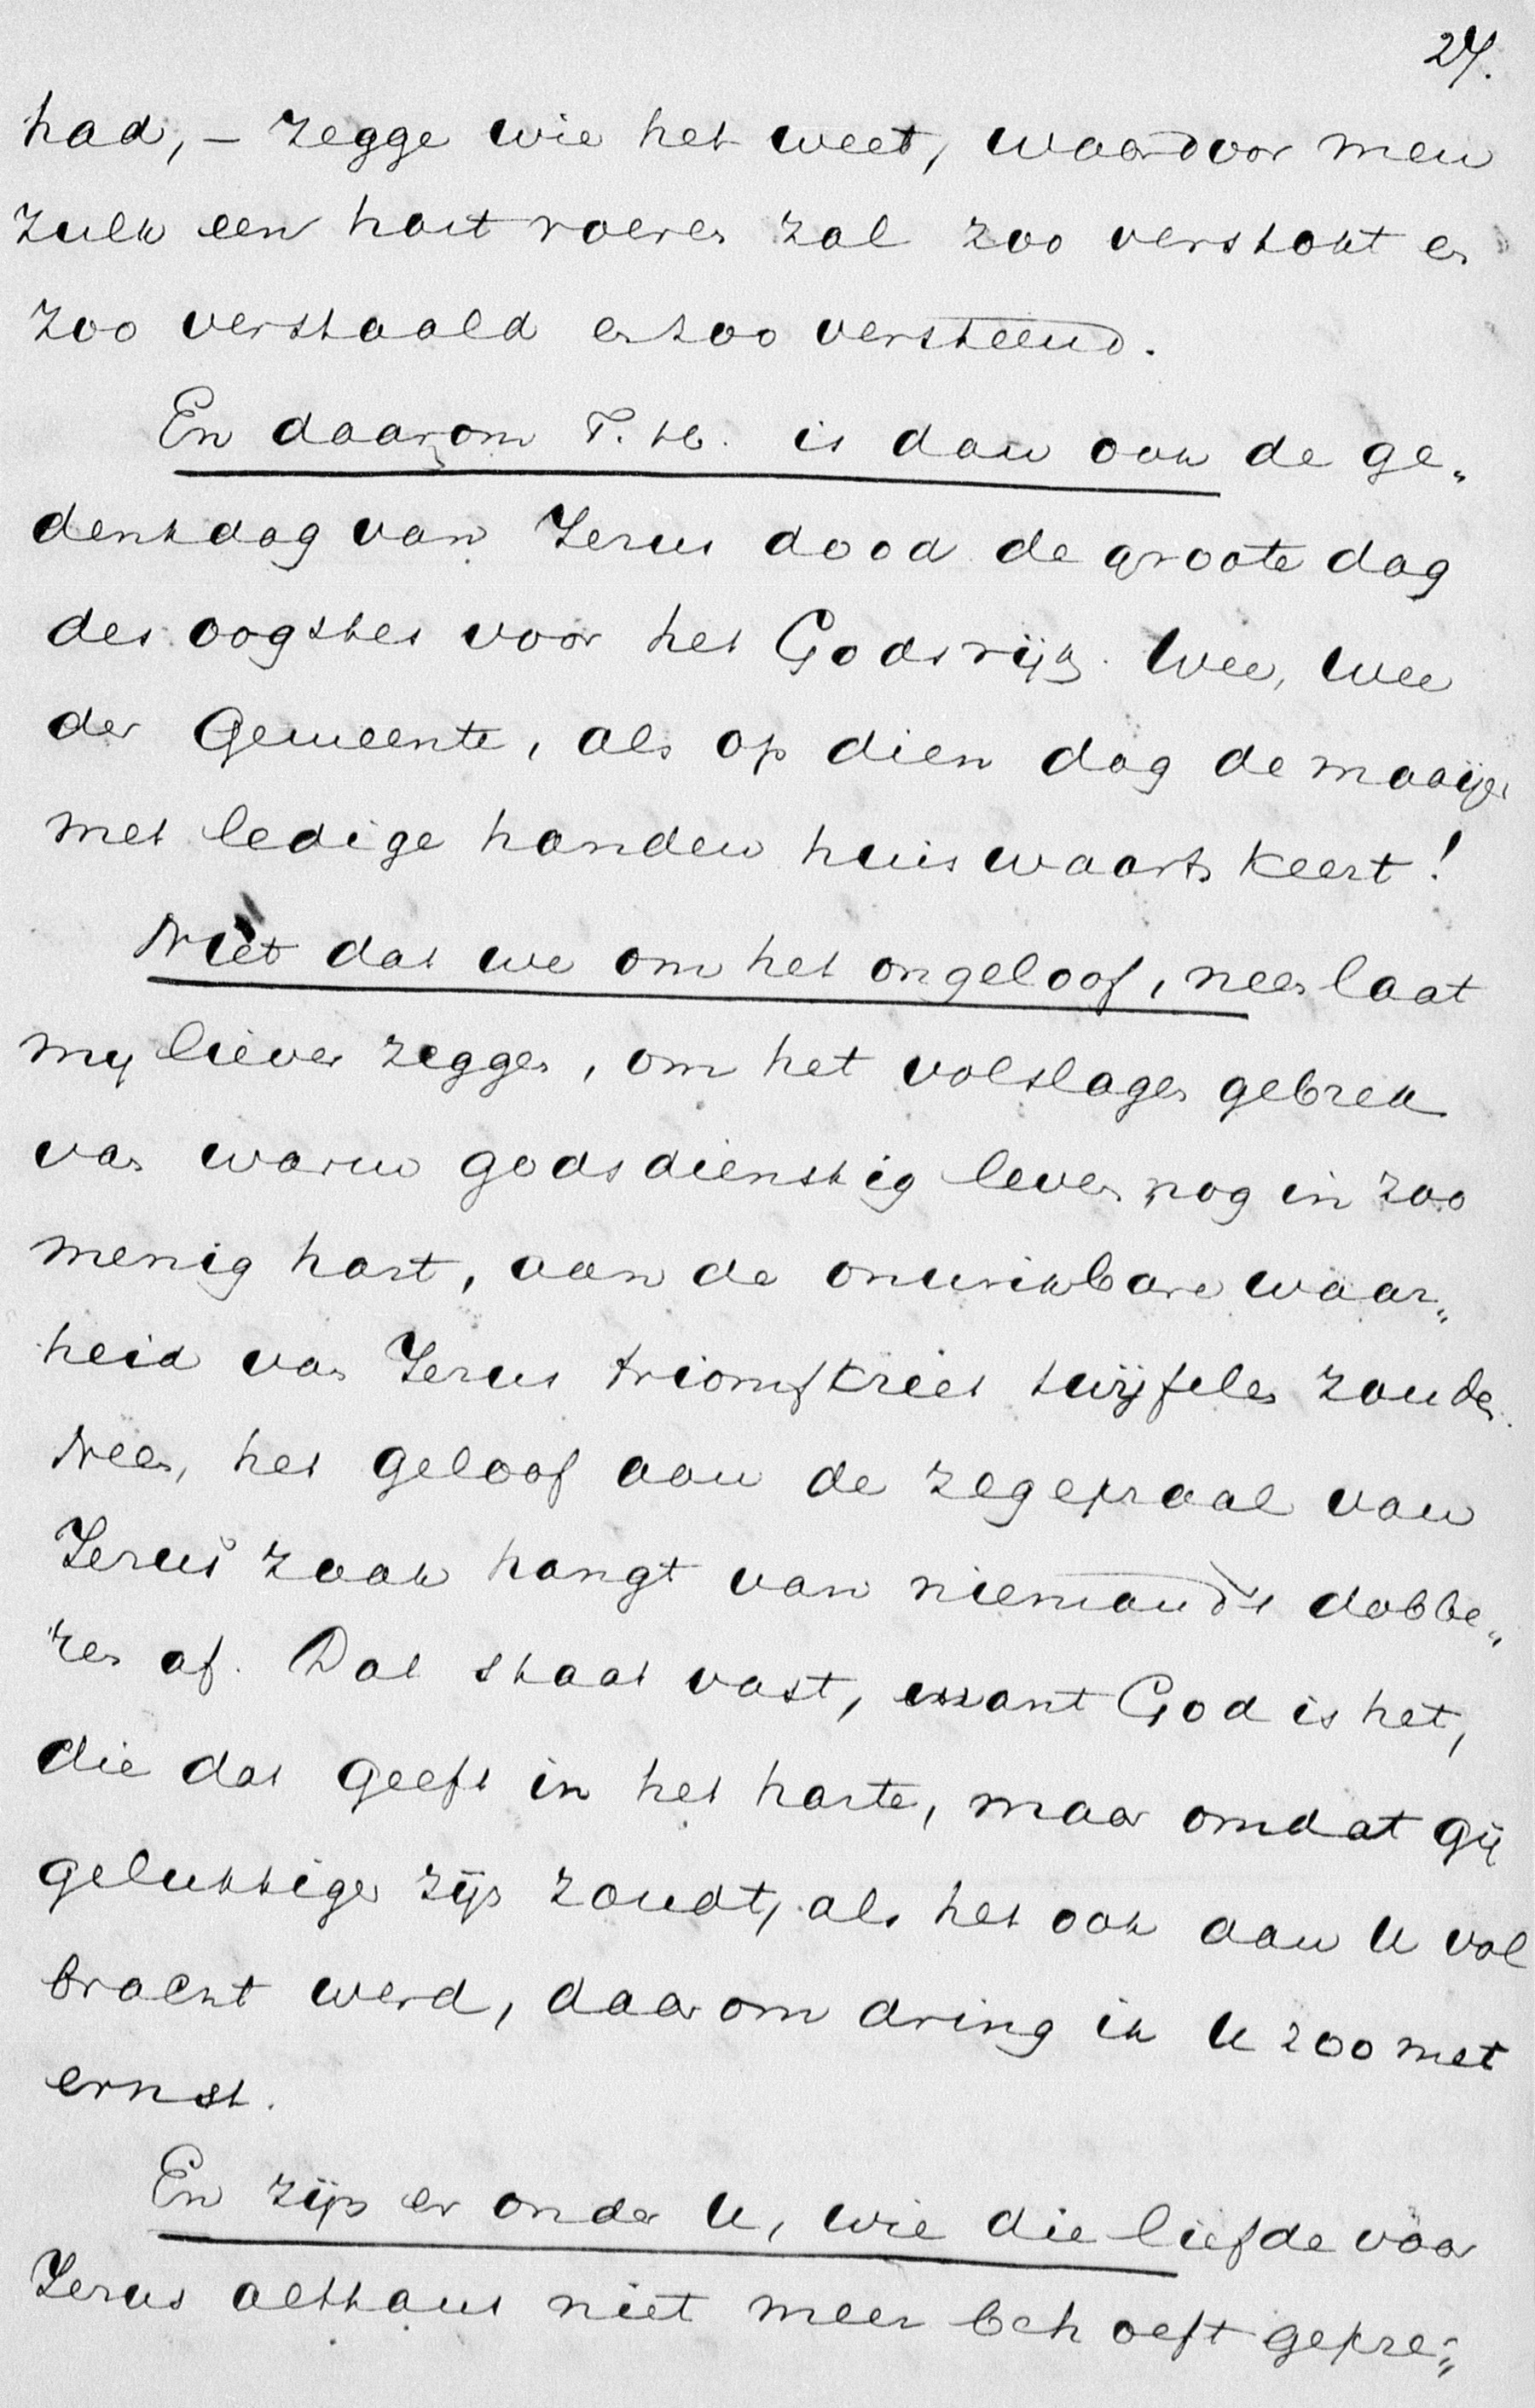 27.
had, – zegge wie het weet, waardoor men
zulk een hart roeren zal zoo verstokt en
zoo verstaald en zoo versteend.
En daarom T. H. is dan ook de ge„
denkdag van Jezus dood de groote dag
des oogstes voor het Godsrijk. Wee, wee
der Gemeente, als op dien dag de maaijer
met ledige handen huiswaarts keert!
Niet dat we om het ongeloof, neen laat
mij liever zeggen, om het volslagen gebrek
van warm godsdienstig leven nog in zoo
menig hart, aan de onwrikbare waar„
heid van Jezus triomfkreet twijfelen zouden.
Neen, het geloof aan de zegepraal van
Jezus zaak hangt van niemands dobbe„
ren af. Dat staat vast, want God is het,
die dat geeft in het harte, maar omdat gij
gelukkiger zijn zoudt, als het ook aan U vol
bracht werd, daarom dring ik U zoo met
ernst.
En zijn er onder U, wie die liefde voor
Jezus althans niet meer behoeft gepre„